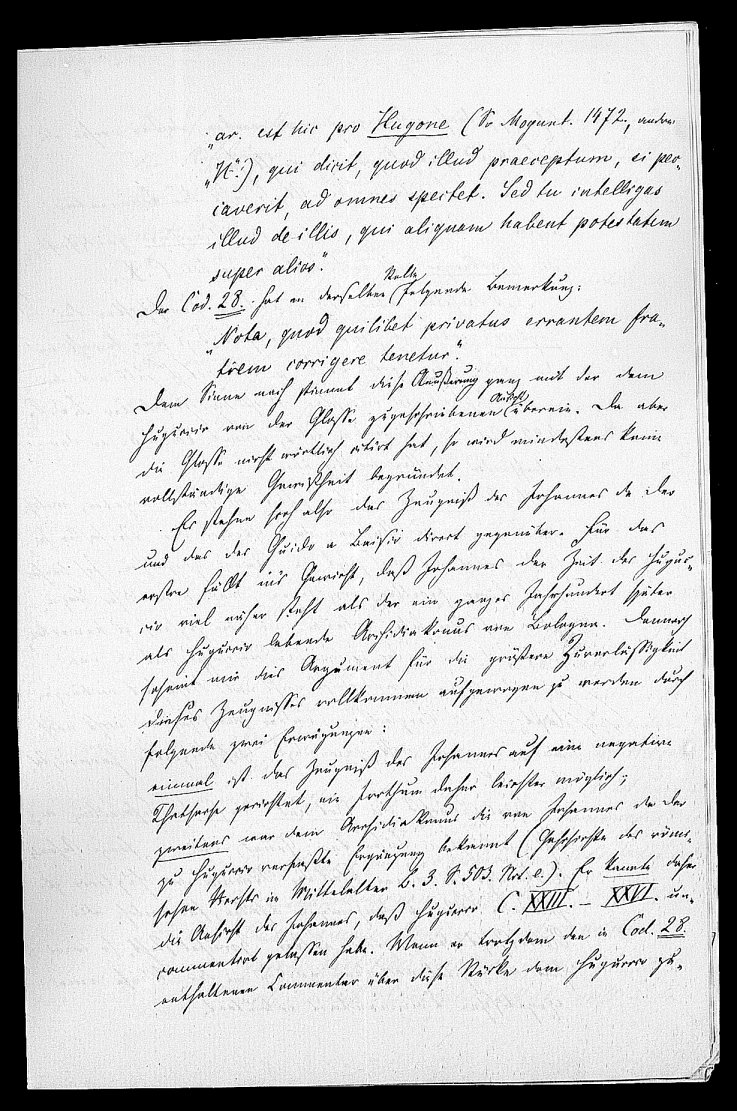 „ar. est hic pro Hugone (So Mogunt. 1472., andere
„H“:), qui dicit, quod illud praeceptum, si pec-
caverit, ad omnes spectet. Sed tu intelligas
illud de illis, qui aliquam habent potestatem
super alios“.
Der Cod. 28. hat an derselben Stelle folgende Bemerkung:
„Nota, quod quilibet privatus errantem fra-
trem corrigere tenetur“.
Dem Sinne nach stimmt diese Äußerung ganz mit der dem
Huguccio von der Glosse zugeschriebenen Ansicht überein. Da aber
die Glosse nicht wörtlich citirt hat, so wird mindestens keine
vollständige Gewißheit begründet.
Es stehen sich also das Zeugniß des Johannes de Deo
und das des Guido a Baisio direct gegenüber. Für das
erstre fällt ins Gewicht, daß Johannes der Zeit des Huguc-
cio viel näher steht als der ein ganzes Jahrhundert später
als Huguccio lebende Archidiakonus von Bologna. Dennoch
scheint mir dies Argument für die größere Zuverlässigkeit
dieses Zeugnisses vollkommen aufgewogen zu werden durch
folgende zwei Erwägungen:
einmal ist das Zeugniß des Johannes auf eine negative
Thatsache gerichtet, ein Irrthum daher leichter möglich;
zweitens war dem Archidiakonus die von Johannes de Deo
zu Huguccio verfaßte Ergänzung bekannt (Geschichte des römi-
schen Rechts im Mittelalter B. 3. S. 503. Not. e.). Er kannte daher
die Ansicht des Johannes, daß Huguccio C. XXIII. – XXVI. un-
commentirt gelassen habe. Wenn er trotzdem den in Cod. 28.
enthaltenen Commentar über diese Stücke dem Huguccio zu-